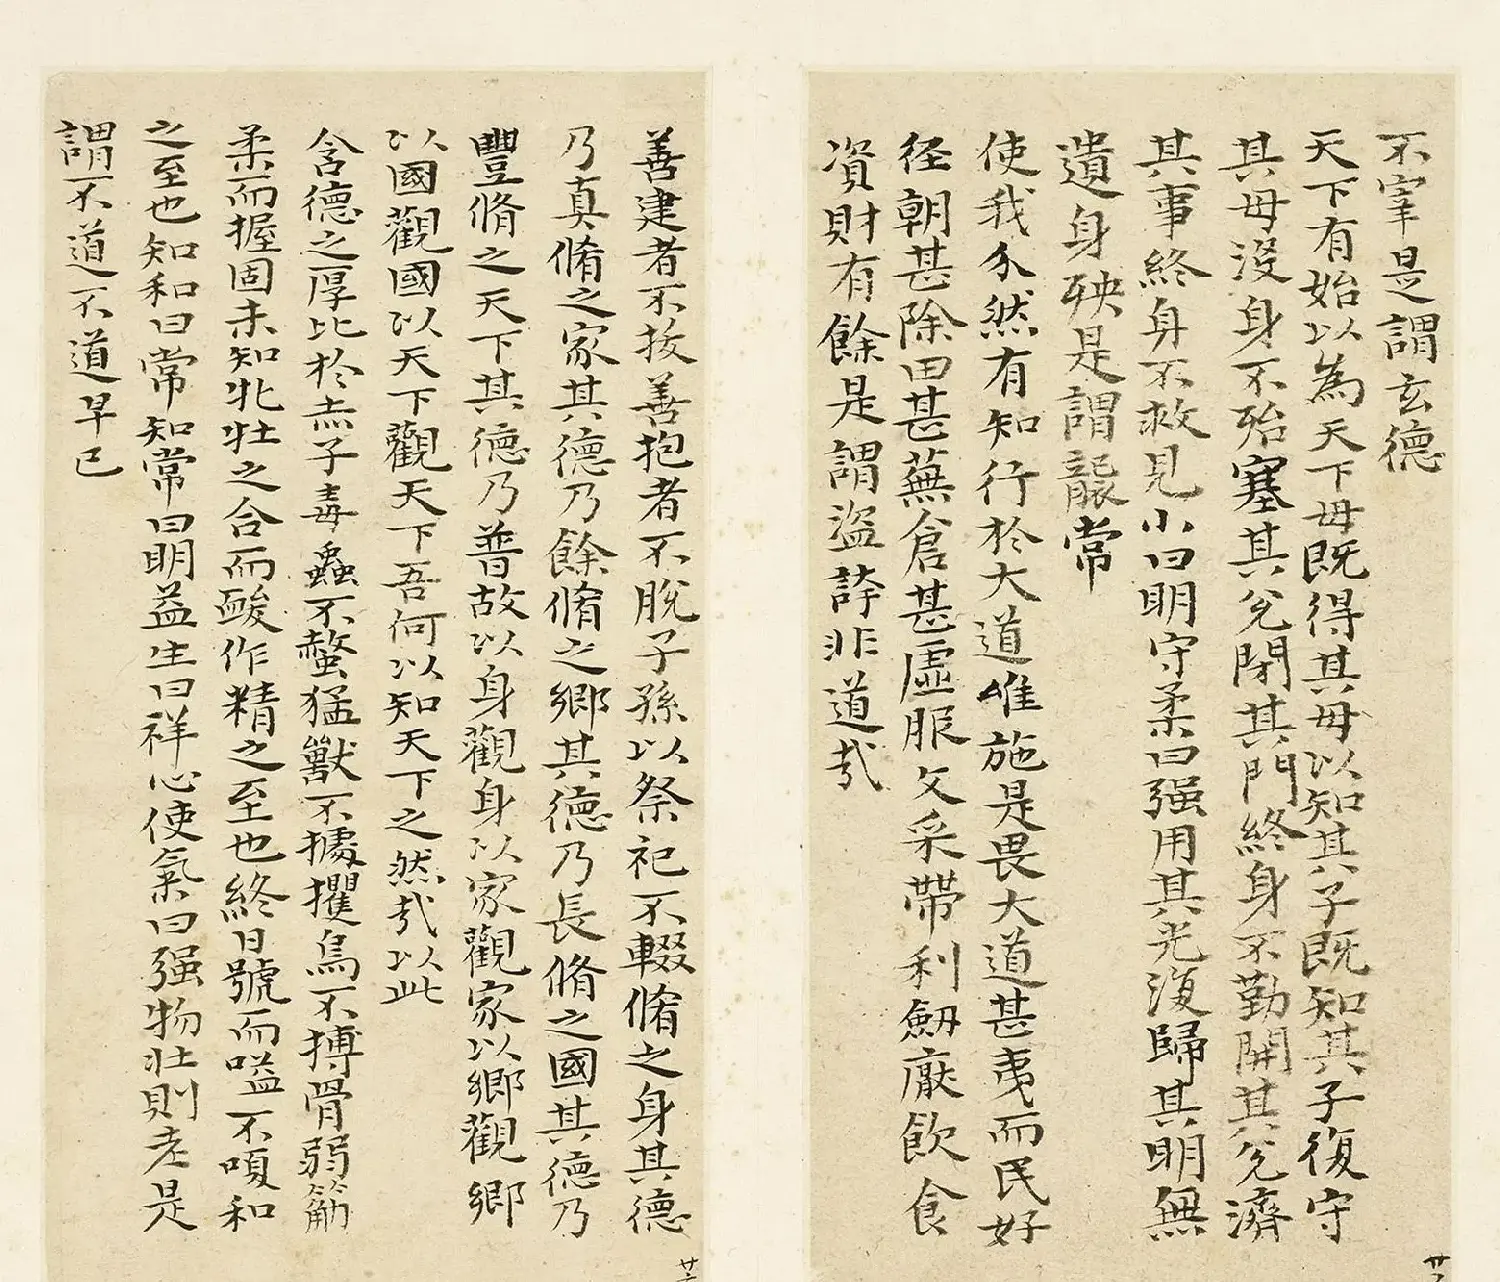 不宰是謂玄德
天下有始以為天下母既得其母以知其子既知其子復守
其母沒身不殆塞其兌閉其門終身不勤開其兌濟
其事終身不救見小曰明守柔曰强用其光復歸其明無
遺身殃是謂襲常
使我介然有知行於大道唯施是畏大道甚夷而民好
径朝甚除田甚蕪倉甚虛服文采帶利劒厭飲食
資財有餘是謂盜誇非道哉
廿
善建者不拔善抱者不脫子孫以祭祀不輟脩之身其德
乃真脩之家其德乃餘脩之鄉其德乃長脩之國其德乃
豐脩之天下其德乃普故以身觀身以家觀家以鄉觀鄉
以國觀國以天下觀天下吾何以知天下之然哉以此
含德之厚比於赤子毒蟲不螫猛獸不據攫鳥不搏骨弱筋
柔而握固未知牝牡之合而酸作精之至也終日號而嗌不嗄和
之至也知和曰常知常曰明益生曰祥心使氣曰强物壯則老是
謂不道不道早已
廿